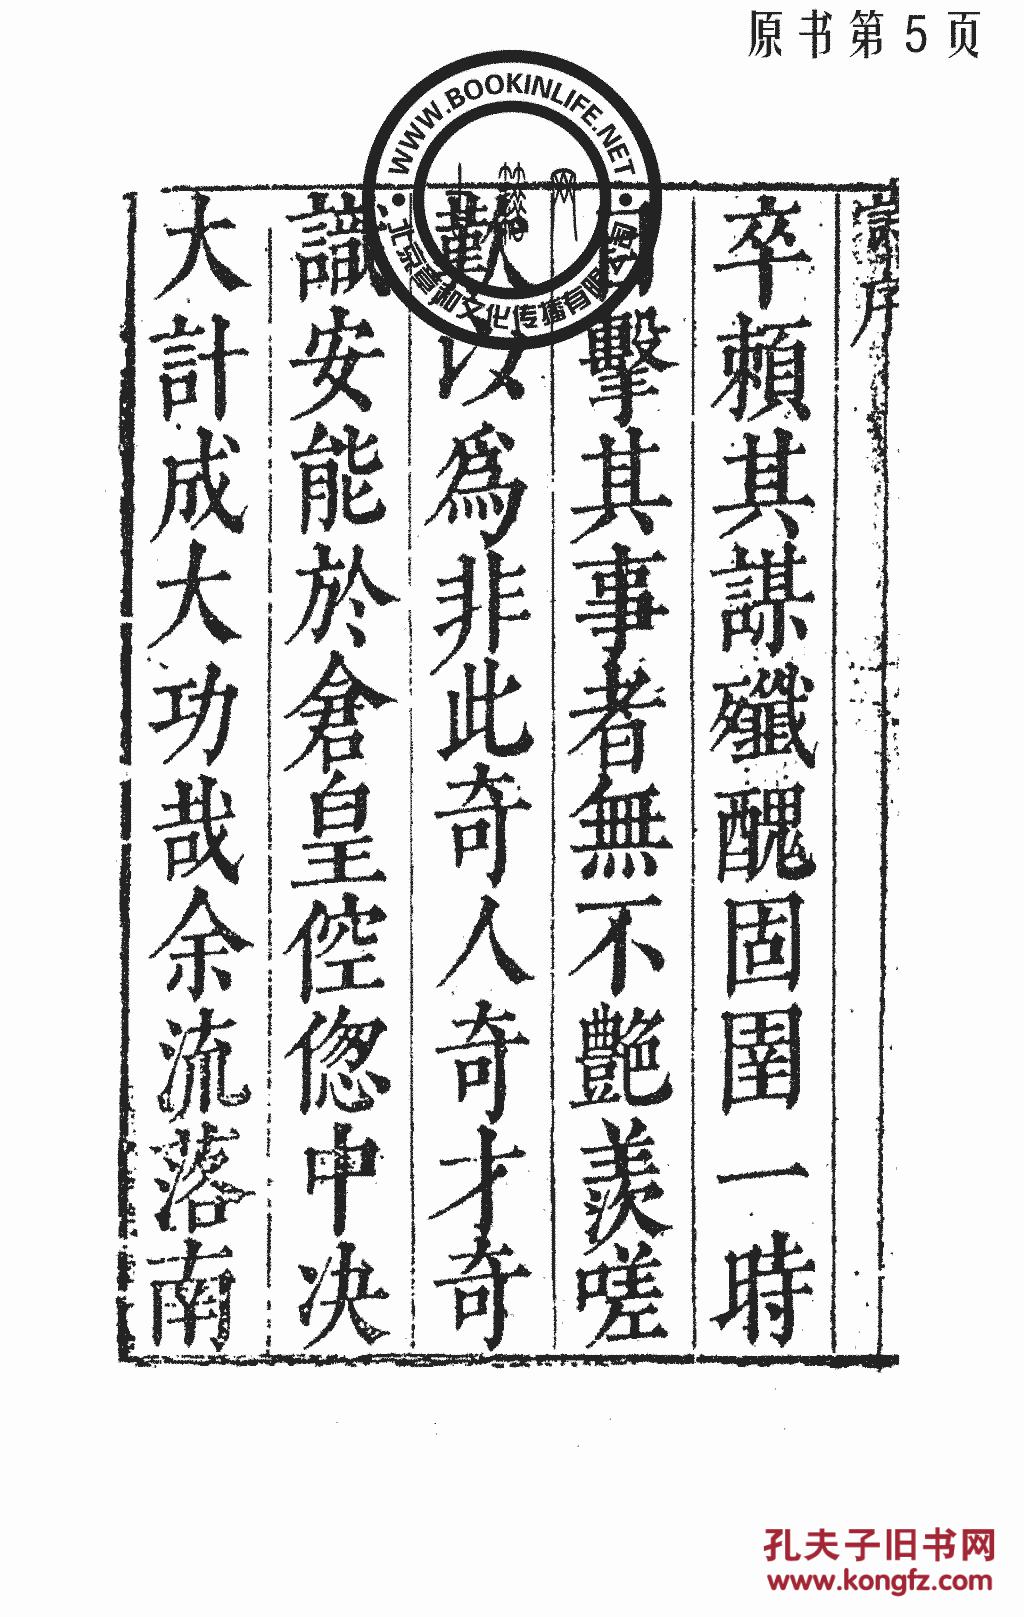 原书第5页
WWW.BOOKINLIFE.NET
文化传播有限公司
序
卒賴其謀殲醜固圉一時
擊其事者無不艶羡嗟
歎以為非此奇人奇才奇
識安能於倉皇倥偬中决
大計成大功哉余流落南
孔夫子旧书网
www.kongfz.com